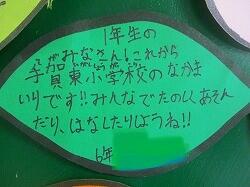 1年生の
みなさん!これから
手賀東小学校のなかま
いりです!!みんなでたのしくあそん
だり、はなしたりしようね!!
6年